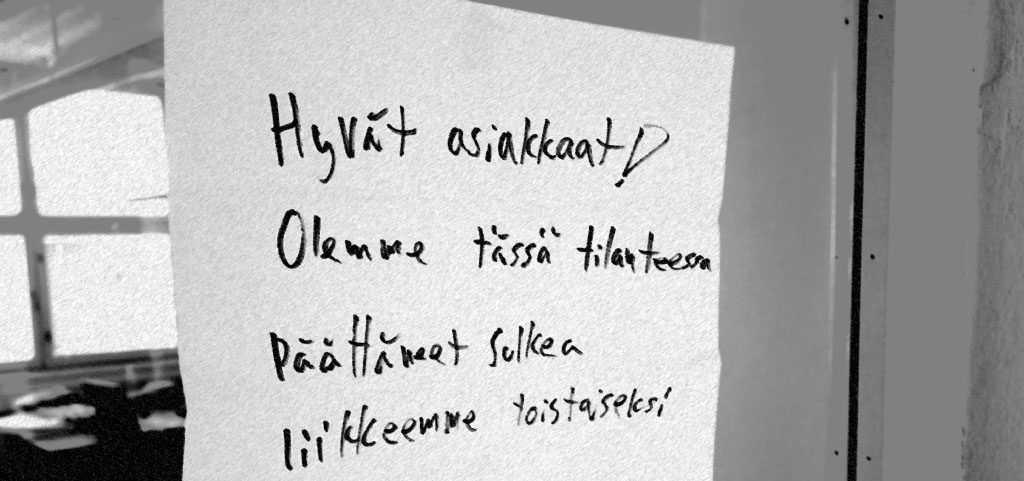 Hyvät asiakkaat!
Olemme tässä tilanteessa
päättäneet sulkea
liikkeemme toistaiseksi